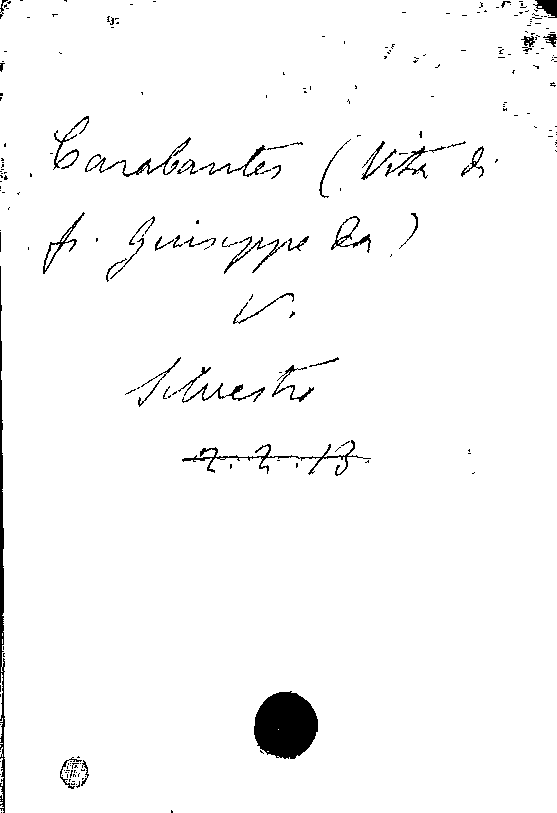 Carabantes (Vita di
fr. Giuseppe da)
V.
Silvestro
2.2.13